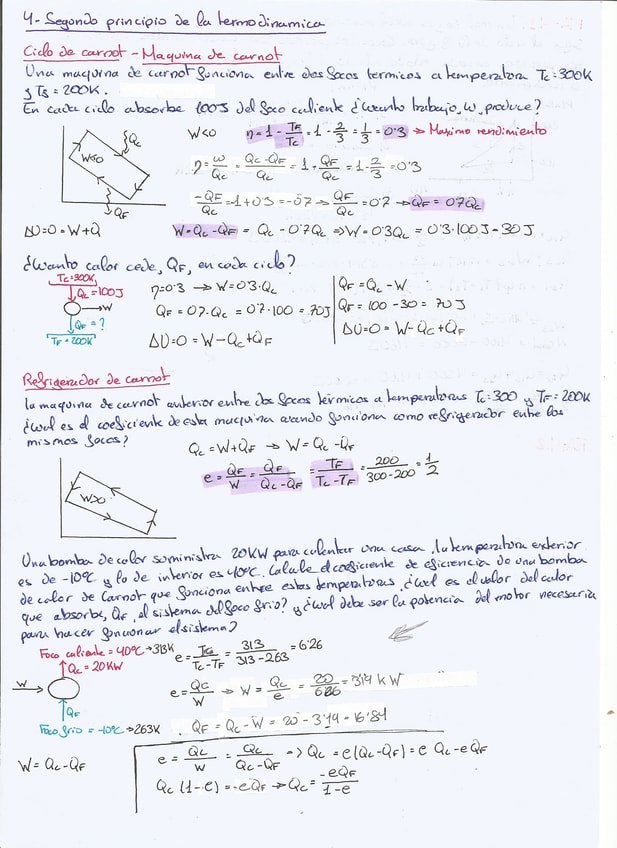 4-Segundo principio de la termodinamica
Ciclo de carnot - Maquina de carnot
Una maquina de carnot funciona entre dos focos termicos a temperatura Tc=300K
y Ts=200K.
En cada ciclo absorbe 100J del foco caliente ¿Cuanto trabajo, w, produce?
W<0 η=1-TF/TC=1-2/3=1/3=0'3 → Maximo rendimiento
QC
W<0
η=W/QC=QC-QF/QC=1+QF/QC=1-2/3=0'3
-QF/QC=-1+0'3=-0'7→QF/QC=0'7→QF=0'7QC
QF
ΔU=0=W+Q W=QC-QF=QC-0'7QC⇒W=0'3QC=0'3·100J=30J
¿Cuanto calor cede, QF, en cada ciclo?
TC=300K
QC=100J
→W
QF=?
TF=200K
η=0'3 → W=0'3·QC
QF=0'7·QC=0'7·100=70J
ΔU=0=W-QC+QF
QF=QC-W
QF=100-30=70J
ΔU=0=W-QC+QF
Refrigerador de carnot
la maquina de carnot anterior entre dos focos térmicos a temperaturas TC=300 y TF=200K
¿cual es el coeficiente de esta maquina cuando funciona como refrigerador entre los
mismos focos?
QC=W+QF → W=QC-QF
W>0
e=QF/W=QF/QC-QF=TF/TC-TF=200/300-200=1/2
Una bomba de calor suministra 20KW para calentar una casa, la temperatura exterior
es de -10ºC y la de interior es 40ºC. Calcule el coeficiente de eficiencia de una bomba
de calor de Carnot que funciona entre estas temperaturas ¿cual es el valor del calor
que absorbe, QF, el sistema del foco frio? y ¿cual debe ser la potencia del motor necesaria
para hacer funcionar el sistema?
Foco caliente=40ºC→313K
QC=20KW
W
QF
Foco frio=-10ºC→263K
e=TC/TC-TF=313/313-263=6'26
e=QC/W → W=QC/e=20/6'26=3'19 KW
QF=QC-W=20-3'19=16'81
W=QC-QF
e=QC/W=QC/QC-QF→QC=e(QC-QF)=e QC-eQF
QC(1-e)=-eQF→QC=-eQF/1-e